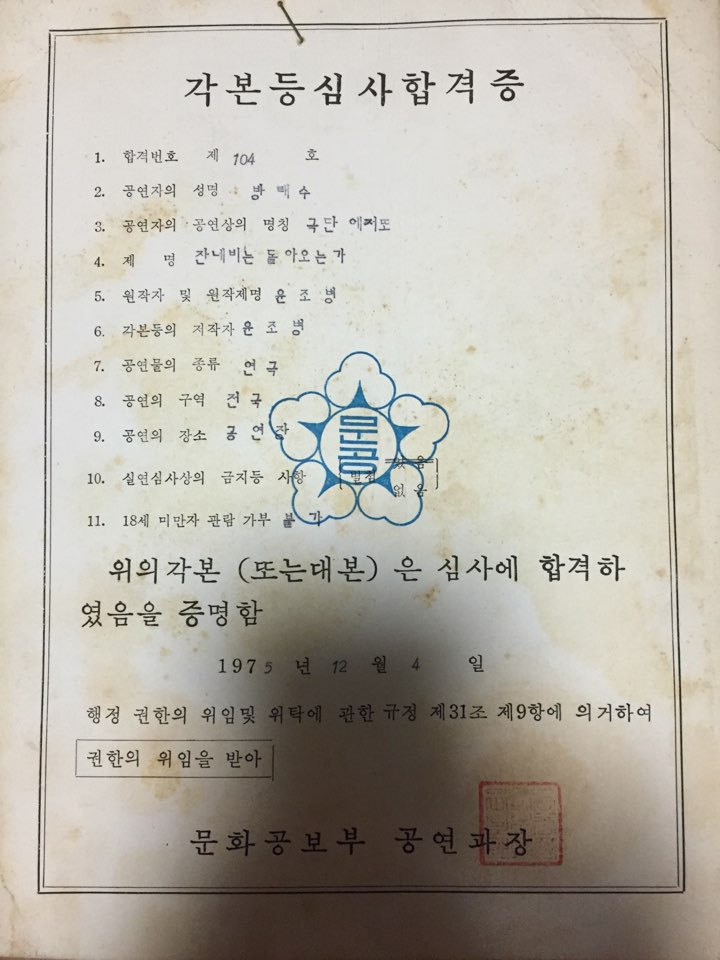 각본등심사합격증
1. 합격번호 제 104 호
2. 공연자의 성명 : 방태수
3. 공연자의 공연상의 명칭 극단 에저또
4. 제 명 잔네비는 돌아오는가
5. 원작자 및 원작제명 윤조병
6. 각본등의 저작자 윤조병
7. 공연물의 종류 연극
8. 공연의 구역 전국
9. 공연의 장소 공연장
문공
10. 실연심사상의 금지등 사항 별첨 있음 없음
11. 18세 미만자 관람 가부 불가
위의각본 (또는대본) 은 심사에 합격하
였음을 증명함
1975 년 12 월 4 일
행정 권한의 위임및 위탁에 관한 규정 제31조 제9항에 의거하여
권한의 위임을 받아
문화공보부 공연과장